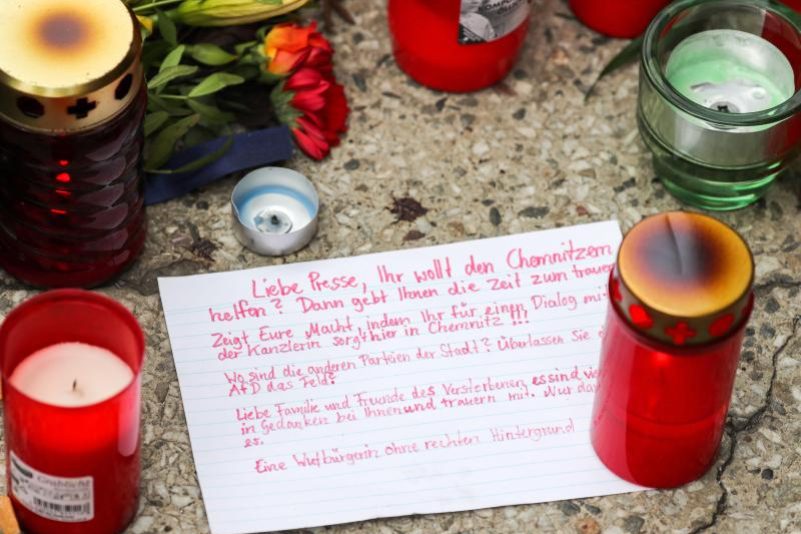 Liebe Presse, Ihr wollt den Chemnitzern
helfen? Dann gebt Ihnen die Zeit zum trauer
Zeigt Eure Macht, indem Ihr für einen Dialog mi
der Kanzlerin sorgt hier in Chemnitz !!!
Wo sind die anderen Parteien der Stadt? Überlassen Sie
AfD das Feld?
Liebe Familie und Freunde des Verstorbenen, es sind vie
in Gedanken bei Ihnen und trauern mit. Nur da
es.
Eine Wutbürgerin ohne rechten Hintergrund
Grablicht